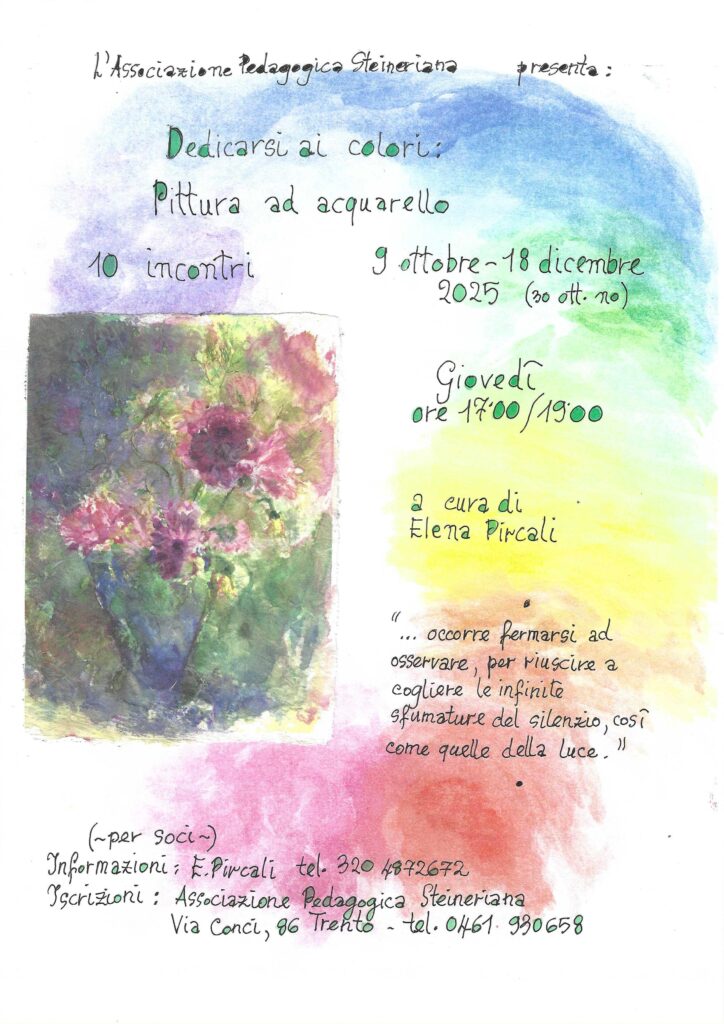 L'Associazione Pedagogica Steineriana presenta:
Dedicarsi ai colori:
Pittura ad acquarello
10 incontri
9 ottobre - 18 dicembre
2025 (30 ott. no)
Giovedì
ore 17:00/19:00
a cura di
Elena Pircali
"... occorre fermarsi ad
osservare, per riuscire a
cogliere le infinite
sfumature del silenzio, così
come quelle della luce."
(~per soci~)
Informazioni: E. Pircali tel. 320 4872672
Iscrizioni: Associazione Pedagogica Steineriana
Via Conci, 86 Trento - tel. 0461 930658